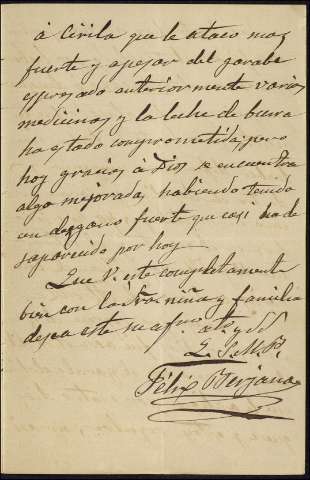 á Cirila que le ataco mas
fuerte y apesar del jarabe
espresado anteriormente varias
medicinas y la leche de burra
ha estado comprometida; pero
hoy gracias á Dios se encuentra
algo mejorada, habiendo tenido
un desgano fuerte que casi ha de
saparecido por hoy.
Que V. este completamente
bien con la Sra. niña y familia
desea este su afmo
Q. S. M. B.
Félix